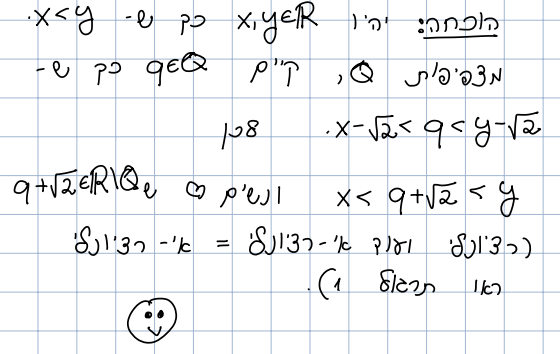 הוכחה: יהיו x,y∈ℝ כך ש- x<y.
מצפיפות ℚ, קיים q∈ℚ כך ש-
x-√2 < q < y-√2. לכן
x < q+√2 < y ונשים ♡ ש q+√2∈ℝ\ℚ
(רציונלי ועוד אי-רציונלי = אי-רציונלי
ראו תרגול 1).